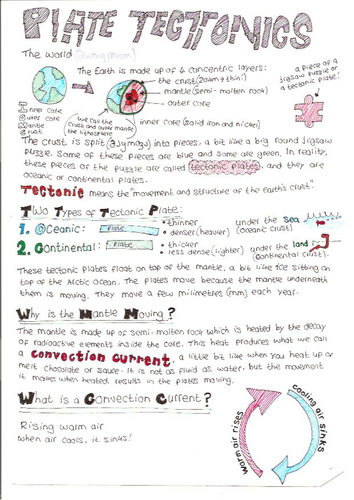 PLATE TECTONICS
The world
The Earth is made up of 4 concentric layers:
the crust (20km + thin!)
mantle (semi-molten rock)
outer core
inner core (solid iron and nickel)
Inner core
Outer core
Mantle
Crust
we call the
crust and outer mantle
the lithosphere
a piece of a
jigsaw puzzle or
a tectonic plate!
The crust is split into pieces, a bit like a big round jigsaw
puzzle. Some of these pieces are blue and some are green. In reality,
these pieces of the puzzle are called tectonic plates, and they are
oceanic or continental plates.
Tectonic means the "movement and structure of the Earth's crust".
Two Types of Tectonic Plate:
1. Oceanic: Plate • thinner • denser (heavier) under the Sea (oceanic crust)
2. Continental: Plate • thicker • less dense (lighter) under the land (continental crust).
These tectonic plates float on top of the mantle, a bit like ice sitting on
top of the Arctic Ocean. The plates move because the mantle underneath
them is moving. They move a few milimetres (mm) each year.
Why is the Mantle Moving?
The mantle is made up of semi-molten rock which is heated by the decay
of radioactive elements inside the core. This heat produces what we call
a convection current, a little bit like when you heat up or
melt chocolate or sauce. It is not as fluid as water, but the movement
it makes when heated, results in the plates moving.
What is a Convection Current?
Rising warm air
when air cools, it sinks!
warm air rises
cooling air sinks